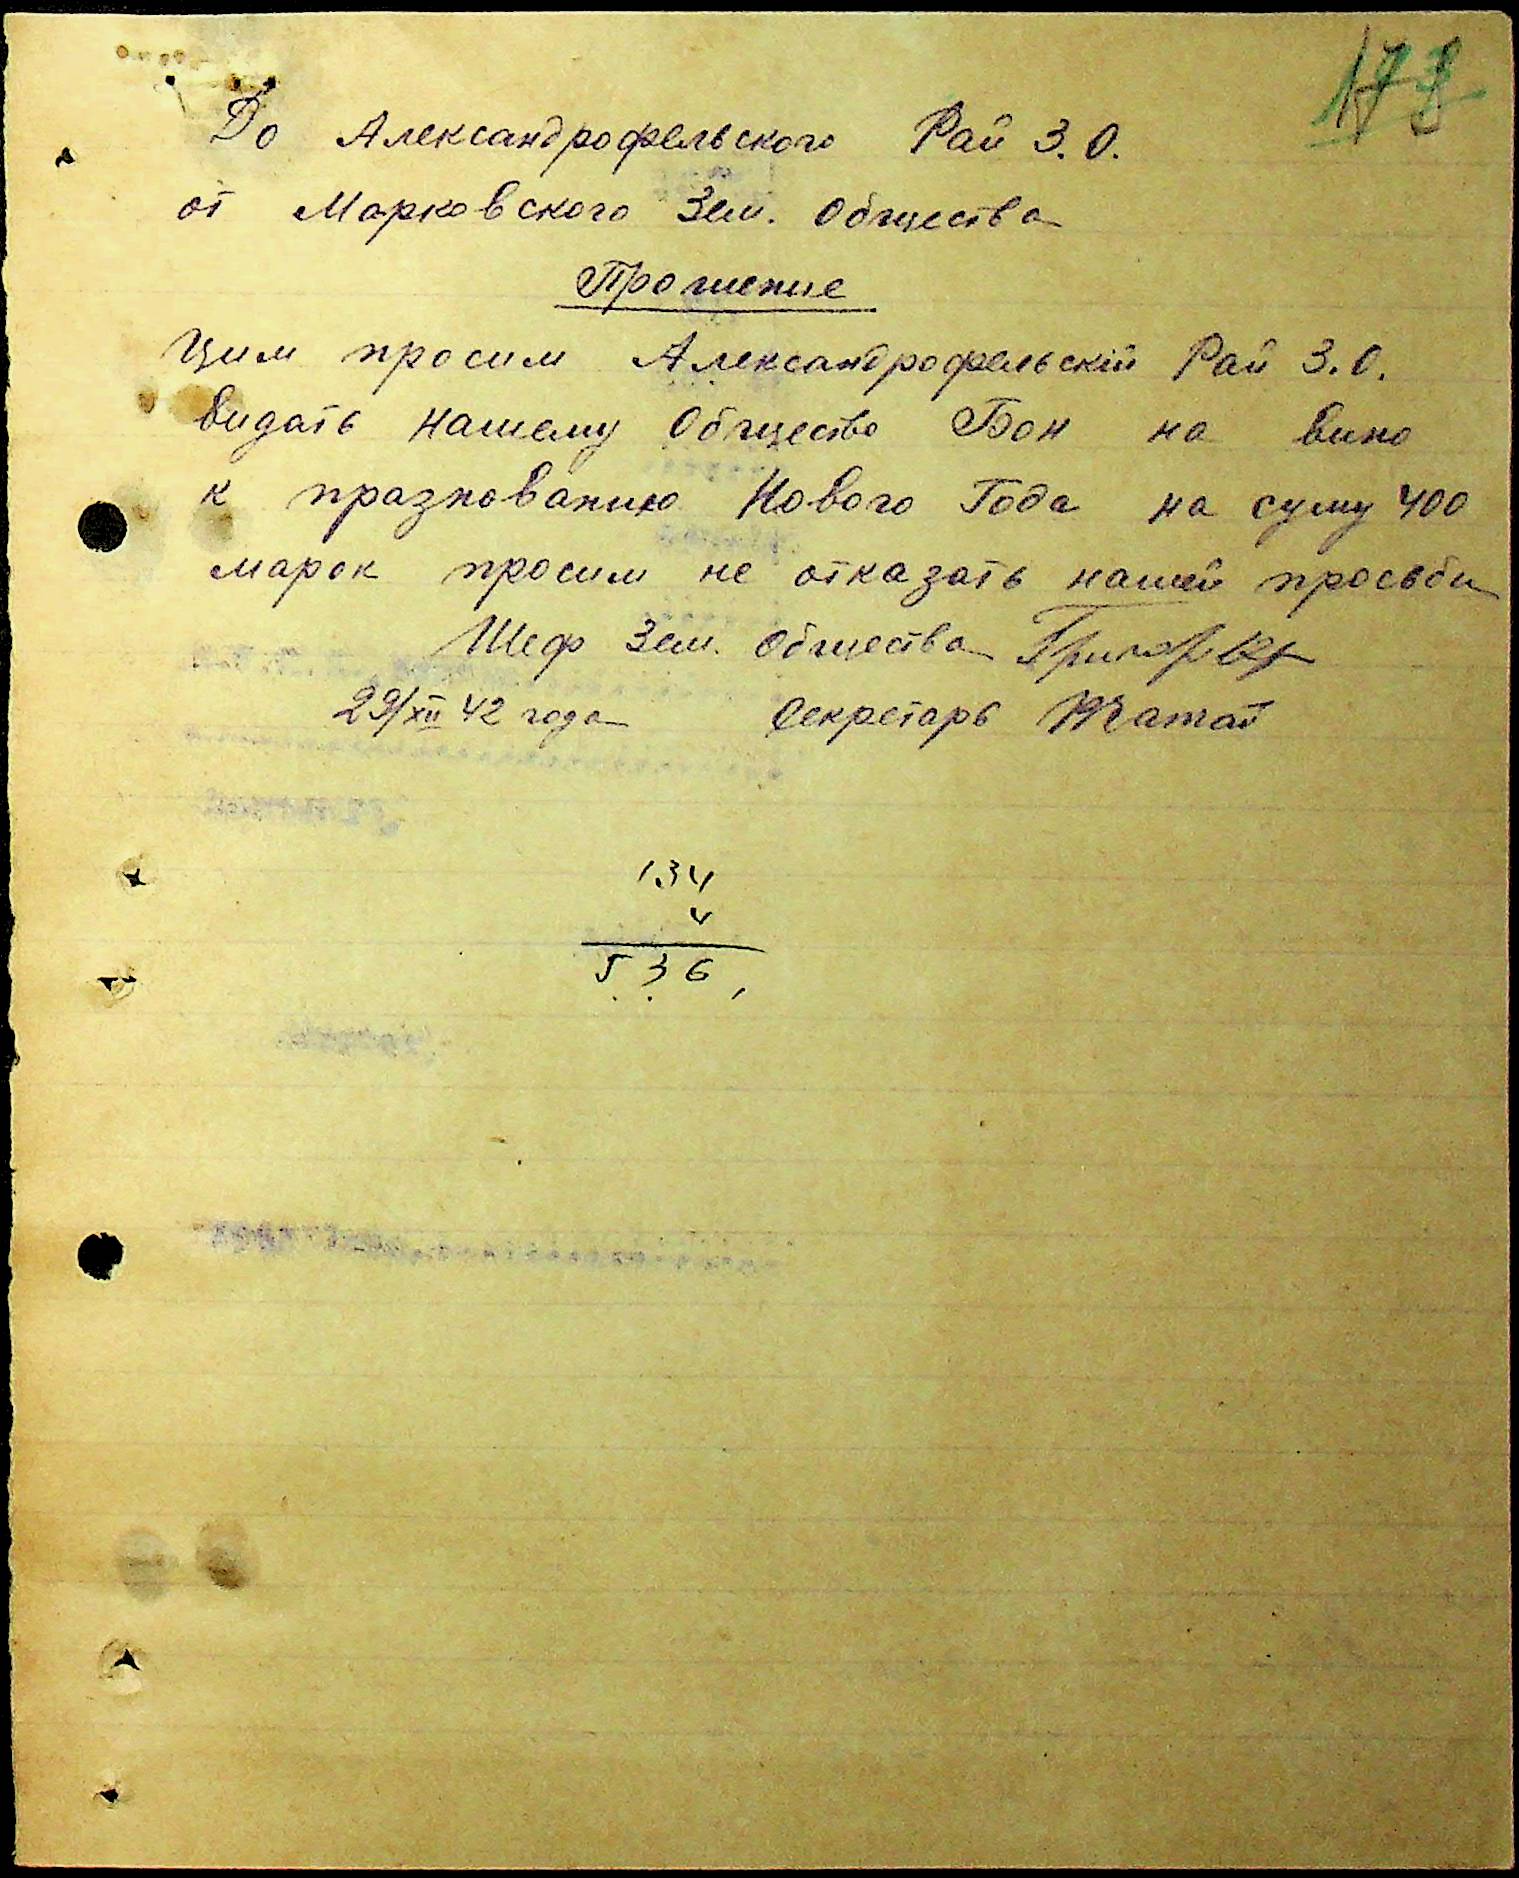 173
До Александрофельского Рай З.О.
от Марковского Зем. Общества
Прошение
Цим просим Александрофельскій Рай З.О.
видать нашему Общество Бон на вино
к празнованию Нового Года на суму 400
марок просим не отказать нашей просьби
Шеф Зем. Общества
29/XII 42 года Секретарь
134
4
536